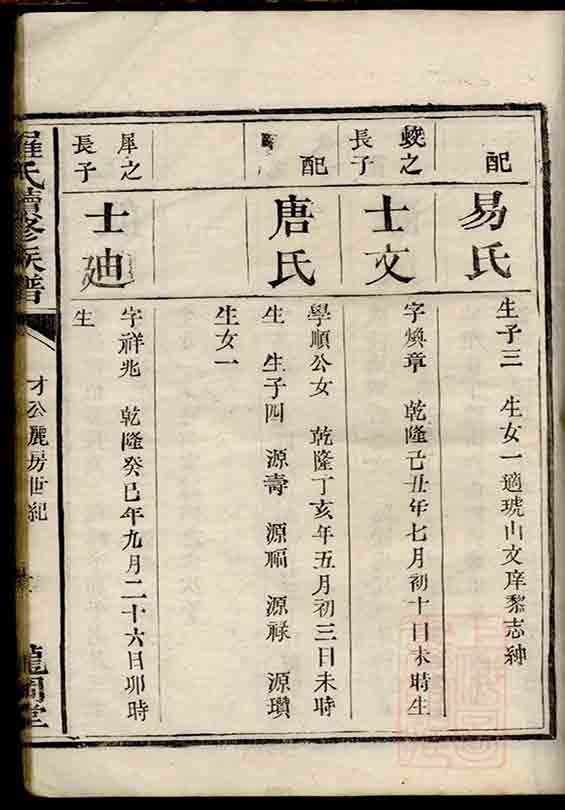 配
易氏
生子三 生女一適琥山文庠黎志紳
蛟之
長子
士文
字煥章 乾隆己丑年七月初十日未時生
配
唐氏
學順公女 乾隆丁亥年五月初三日未時
生 生子四 源壽 源福 源祿 源瓚
生女一
犀之
長子
士迪
字祥兆 乾隆癸巳年九月二十六日卯時
生
羅氏續修族譜
才公麗房世紀